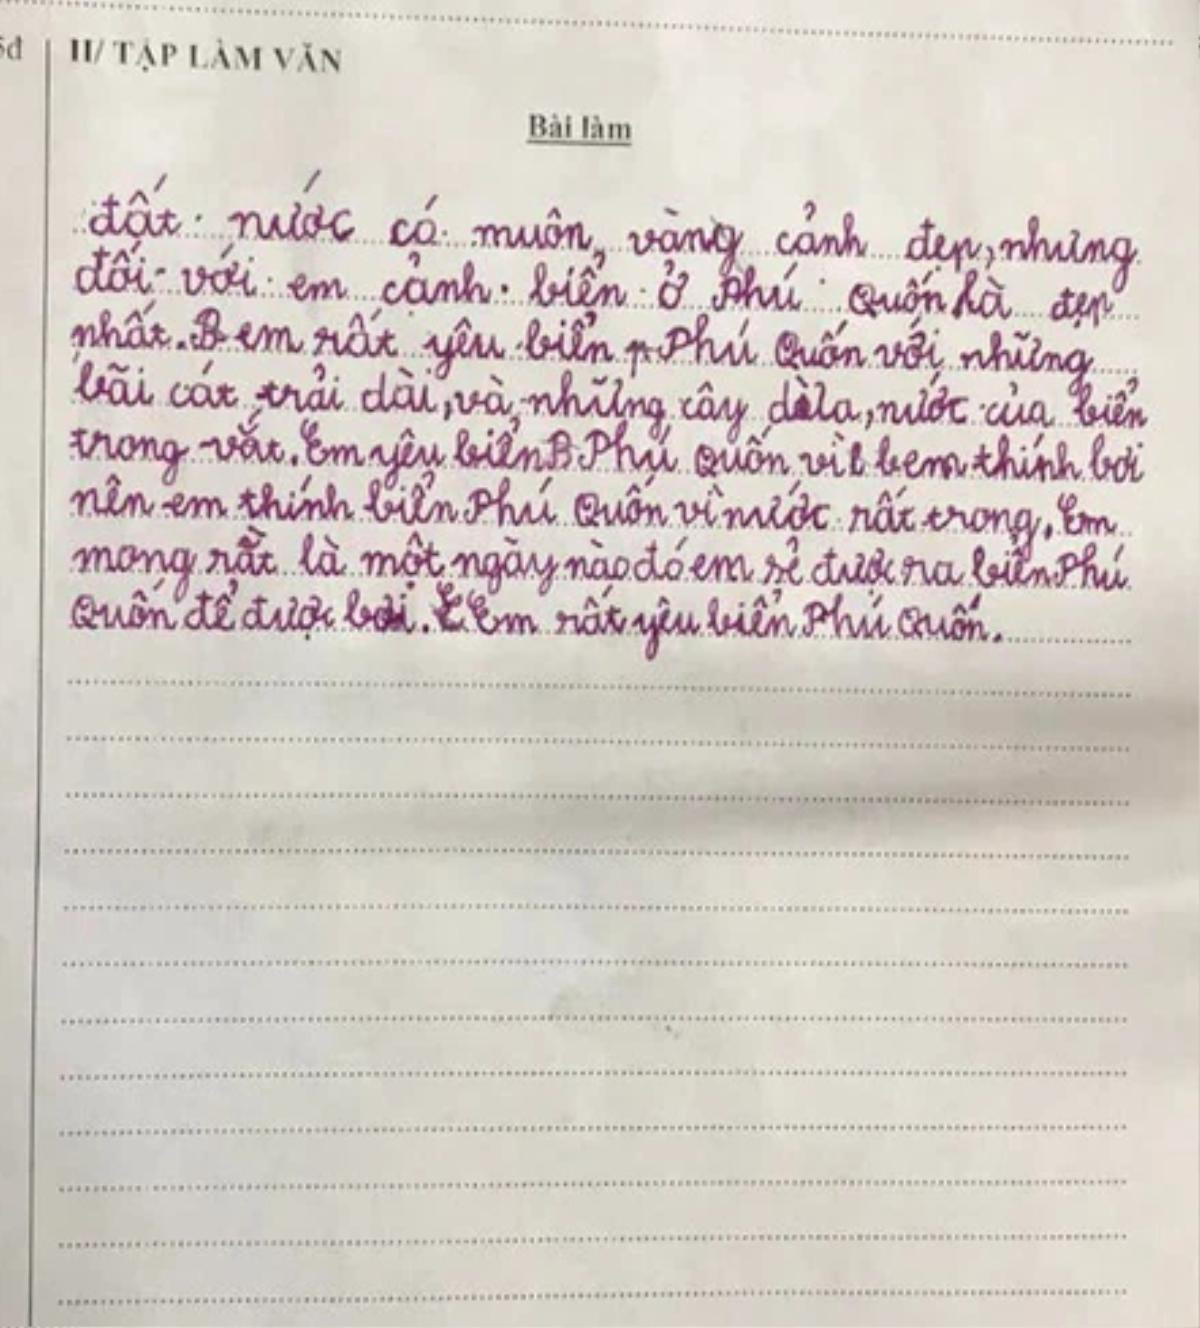 5đ
II/ TẬP LÀM VĂN
Bài làm
đất nước có muôn, vàng cảnh đẹp, nhưng
đối với em cảnh biển ở Phú Quốn là đẹp
nhất. B em rất yêu biển p Phú Quốn với những
bãi cát trải dài, và những cây dừa, nước của biển
trong vắt. Em yêu biển B Phú Quốn vì b em thính bơi
nên em thính biển Phú Quốn vì nước rất trong. Em
mong rằt là một ngày nào đó em sẻ được ra biển Phú
Quốn để được bơi. E Em rất yêu biển Phú Quốn.